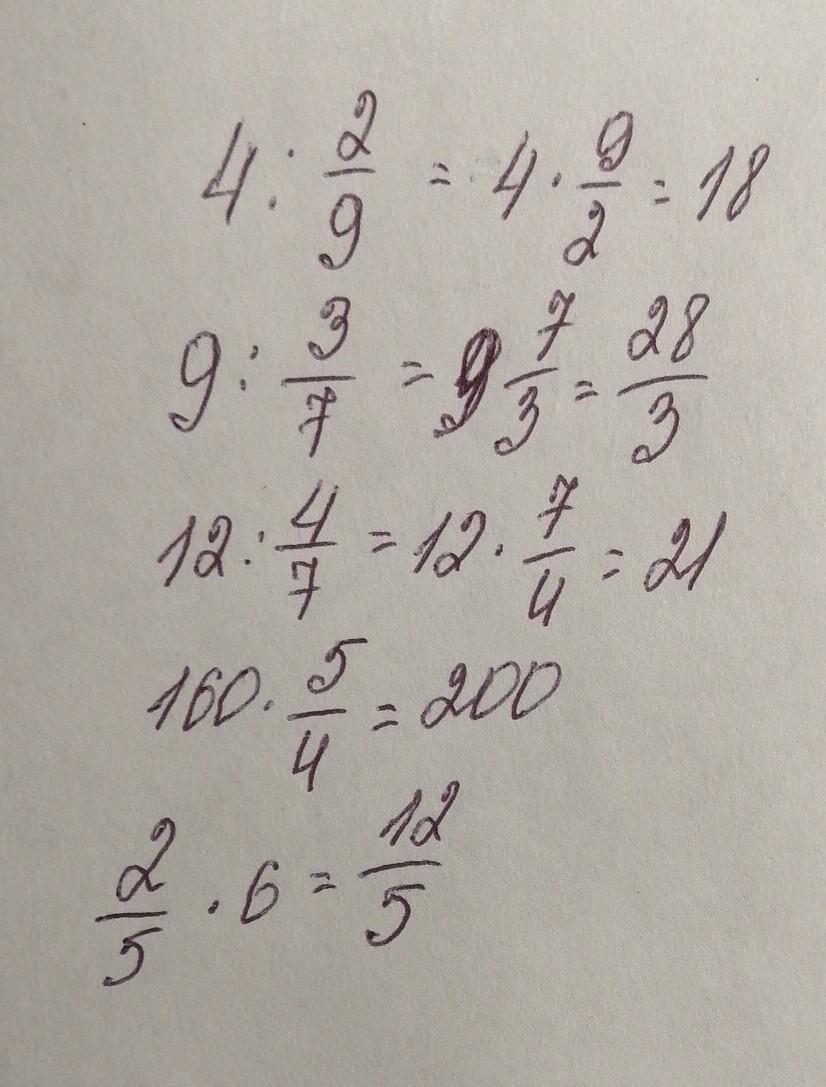 4 : 2/9 = 4 · 9/2 = 18
9 : 3/7 = 9 7/3 = 28/3
12 : 4/7 = 12 · 7/4 = 21
160 · 5/4 = 200
2/5 · 6 = 12/5